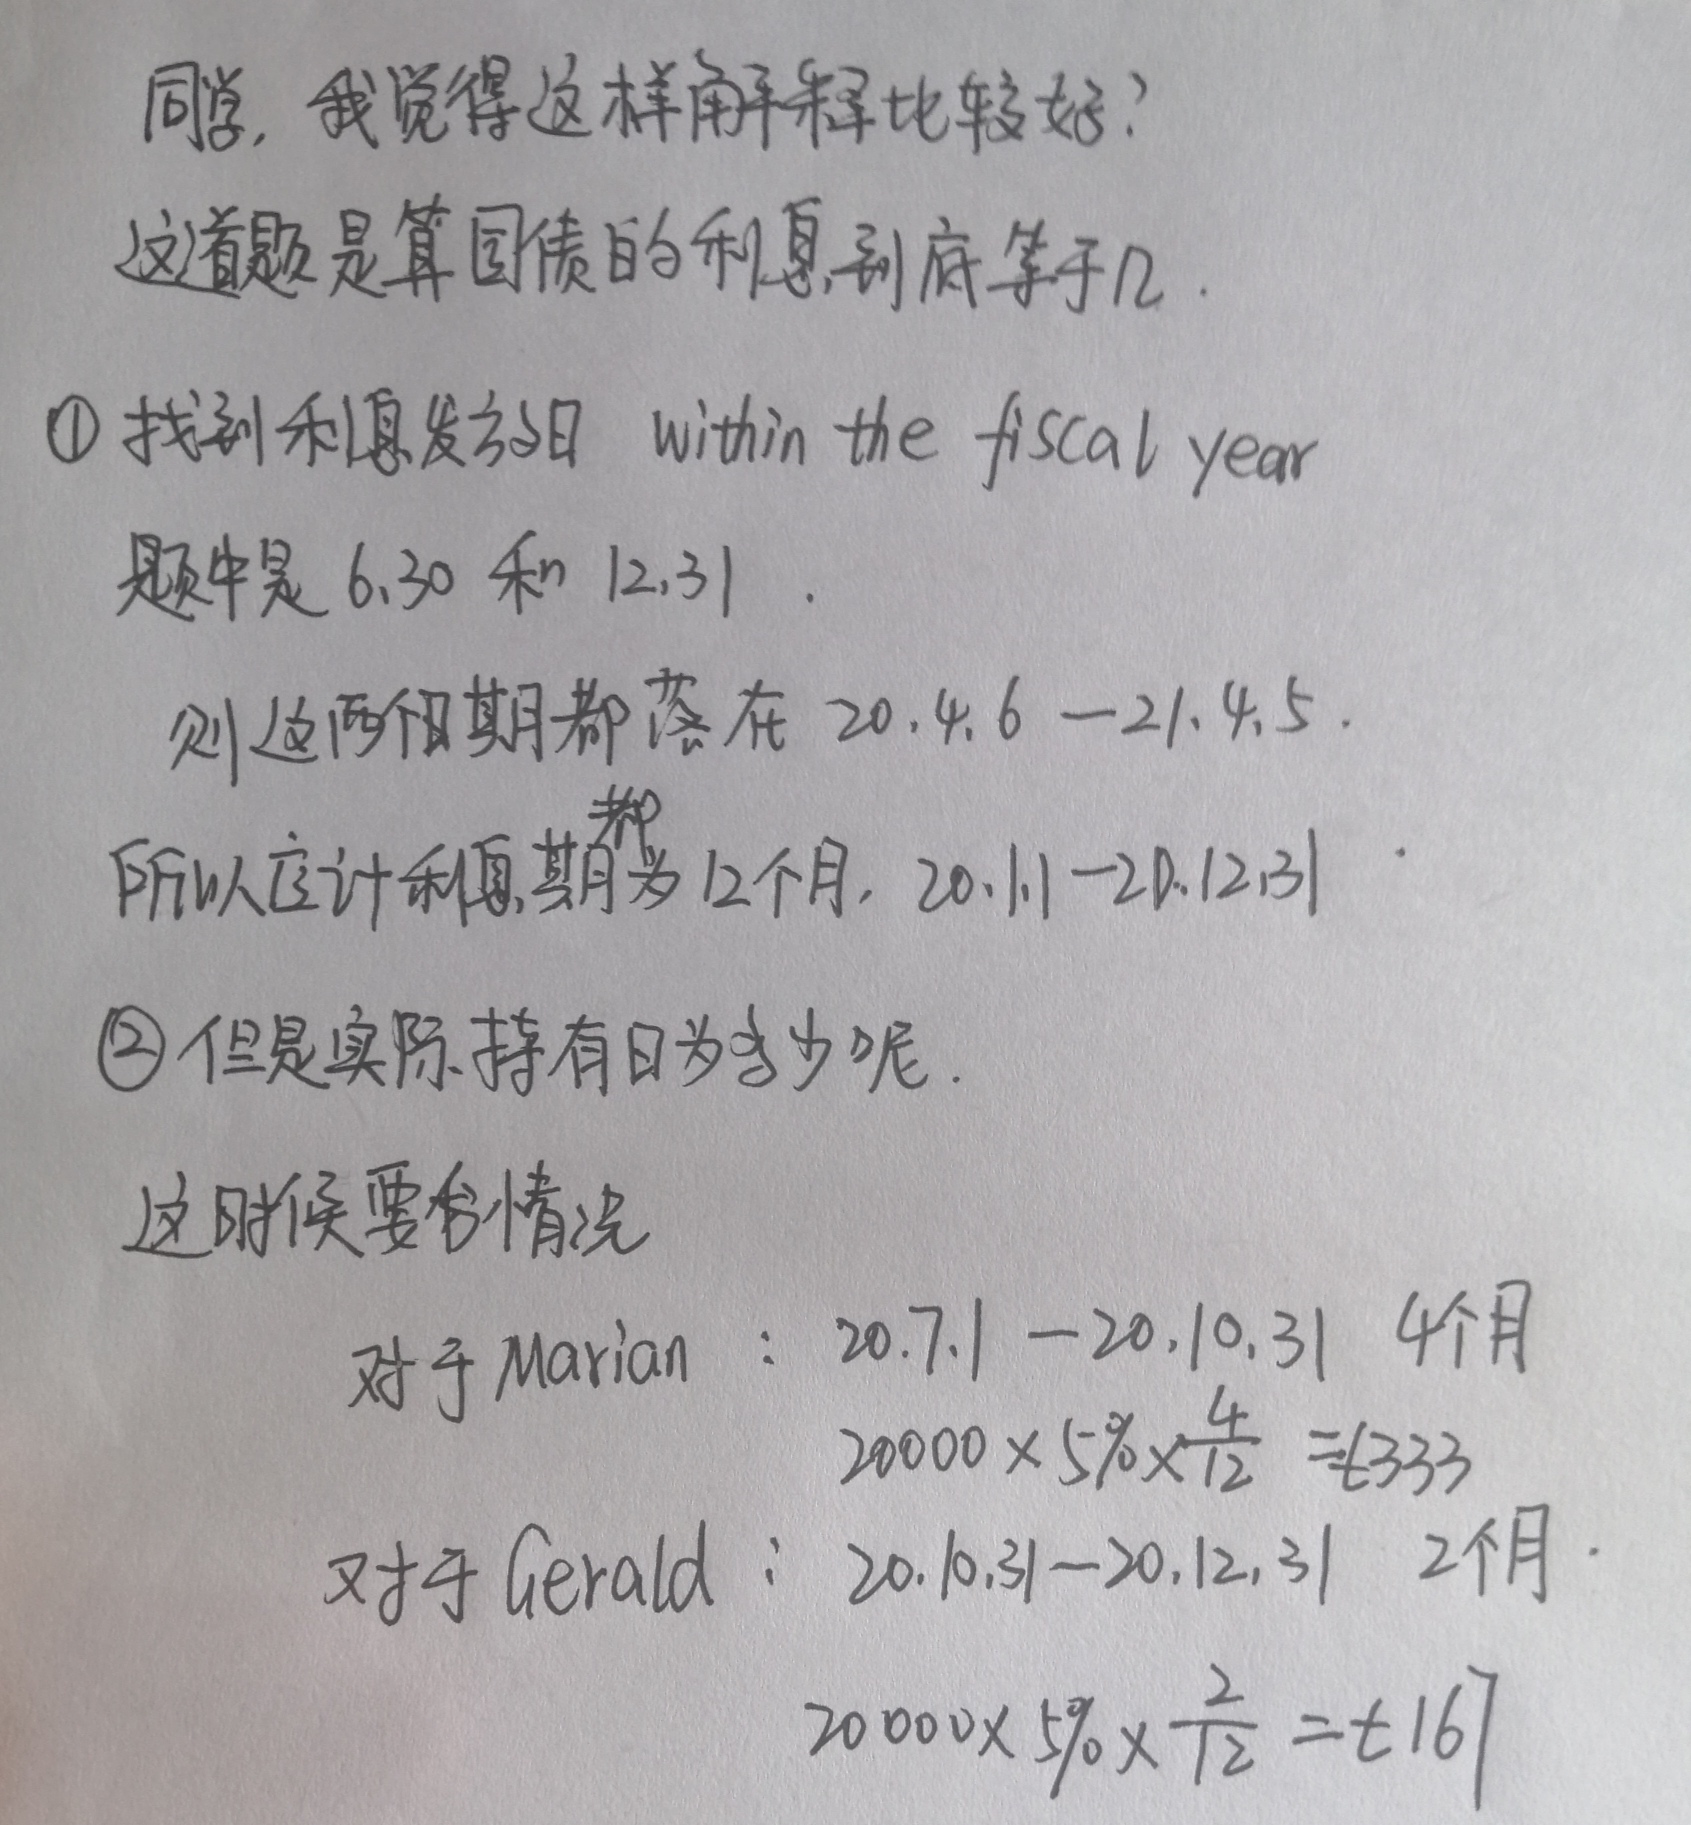 同学,我觉得这样解释比较好?
这道题是算国债的利息,到底等于几.
① 找到利息发放日 within the fiscal year
题中是 6.30 和 12.31 .
则这两个日期都落在 20.4.6 — 21.4.5 .
都
所以应计利息期为12个月, 20.1.1 — 20.12.31
② 但是实际持有日为多少呢.
这时候要看情况
对于 Marian : 20.7.1 — 20.10.31 4个月
20000 × 5% × 4/12 = £333
对于 Gerald : 20.10.31 — 20.12.31 2个月.
20000 × 5% × 2/12 = £167